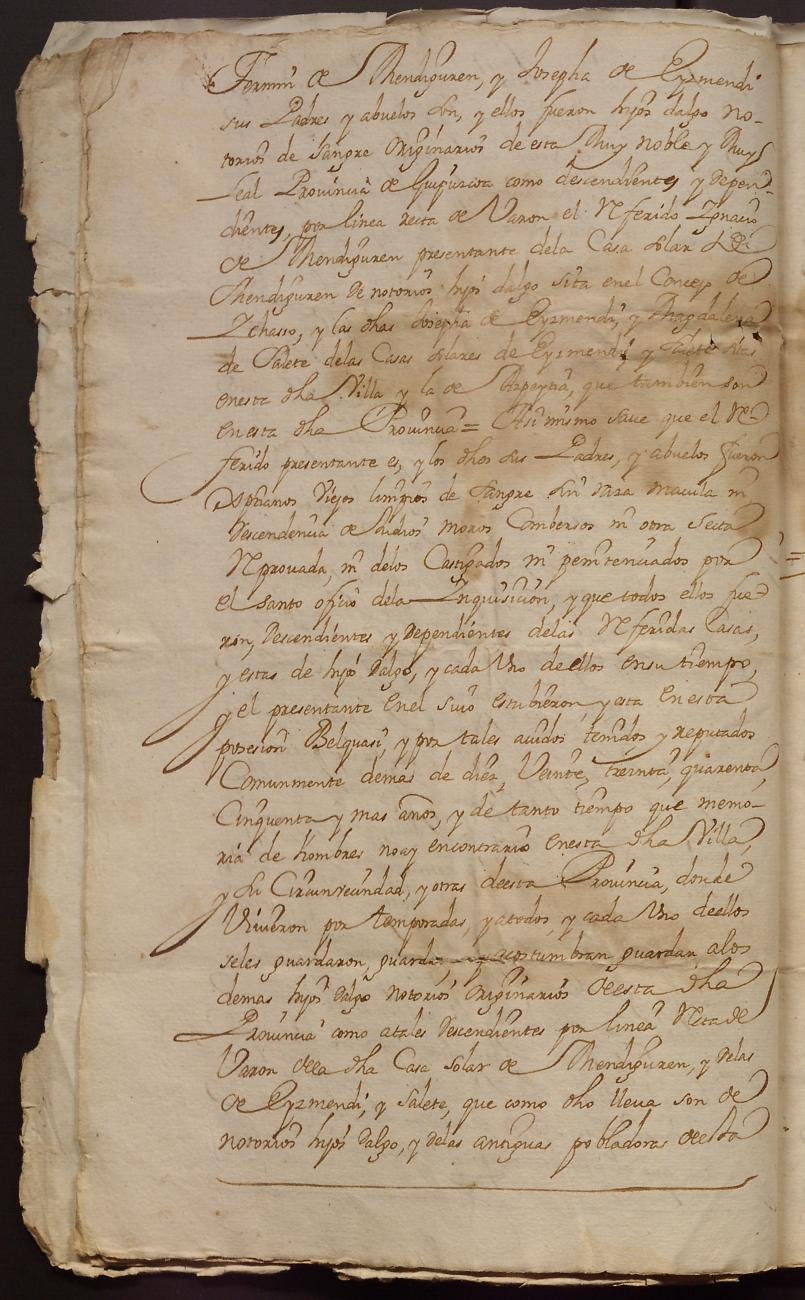 Fermin de Mendiguren, y Josepha de Eyzmendi
sus Padres y abuelos son, y ellos fueron hijos dalgo no-
torios de sangre originarios de esta Muy noble y Muy
Leal Provincia de Guipuzcoa como descendientes y depen-
dientes, por linea recta de Varon el Referido Ignacio
de Mendiguren presentante dela Casa solar de
Mendiguren de notorios hijos dalgo sita enel Concejo de
Ichasso, y las dhas Josepha de Eyzmendi, y Magdalena
de Salete delas Casas solares de Eyzmendi y Salete sitas
enesta dha Villa y la de Azpeytia, que tambien son
enesta dha Provincia = Asi mismo save que el Re-
ferido presentante es, y los dhos sus Padres, y abuelos fueron
Xptianos Viejos limpios de sangre sin raza macula ni
descendencia de Judios moros Combersos ni otra Secta
Reprouada, ni delos Castigados ni penitenciados por
el santo oficio dela Inquisicion, y que todos ellos fue
ron, descendientes y dependientes delas Referidas Casas,
y estas de hijos dalgo, y cada Uno de ellos ensu tiempo,
y el presentante enel suio estubieron, y esta enesta
posesion Belquasi, y por tales auidos tenidos y reputados
Comunmente demas de diez, Veinte, treinta, quarenta,
Cinquenta y mas años, y de tanto tiempo que memo-
ria de hombres noay encontrario enesta dha Villa,
y su Circunvecindad, y otras deesta Provincia, donde
Viuieron por temporadas, y atodos, y cada Uno deellos
seles guardaron, guardan, y acostumbran guardar alos
demas hijos dalgo notorios originarios deesta dha
Provincia como atales descendientes por linea Recta de
Varon dela dha Casa solar de Mendiguren, y delas
de Eyzmendi, y Salete, que como dho lleua son de
notorios hijos dalgo, y delas antiguas pobladoras deesta